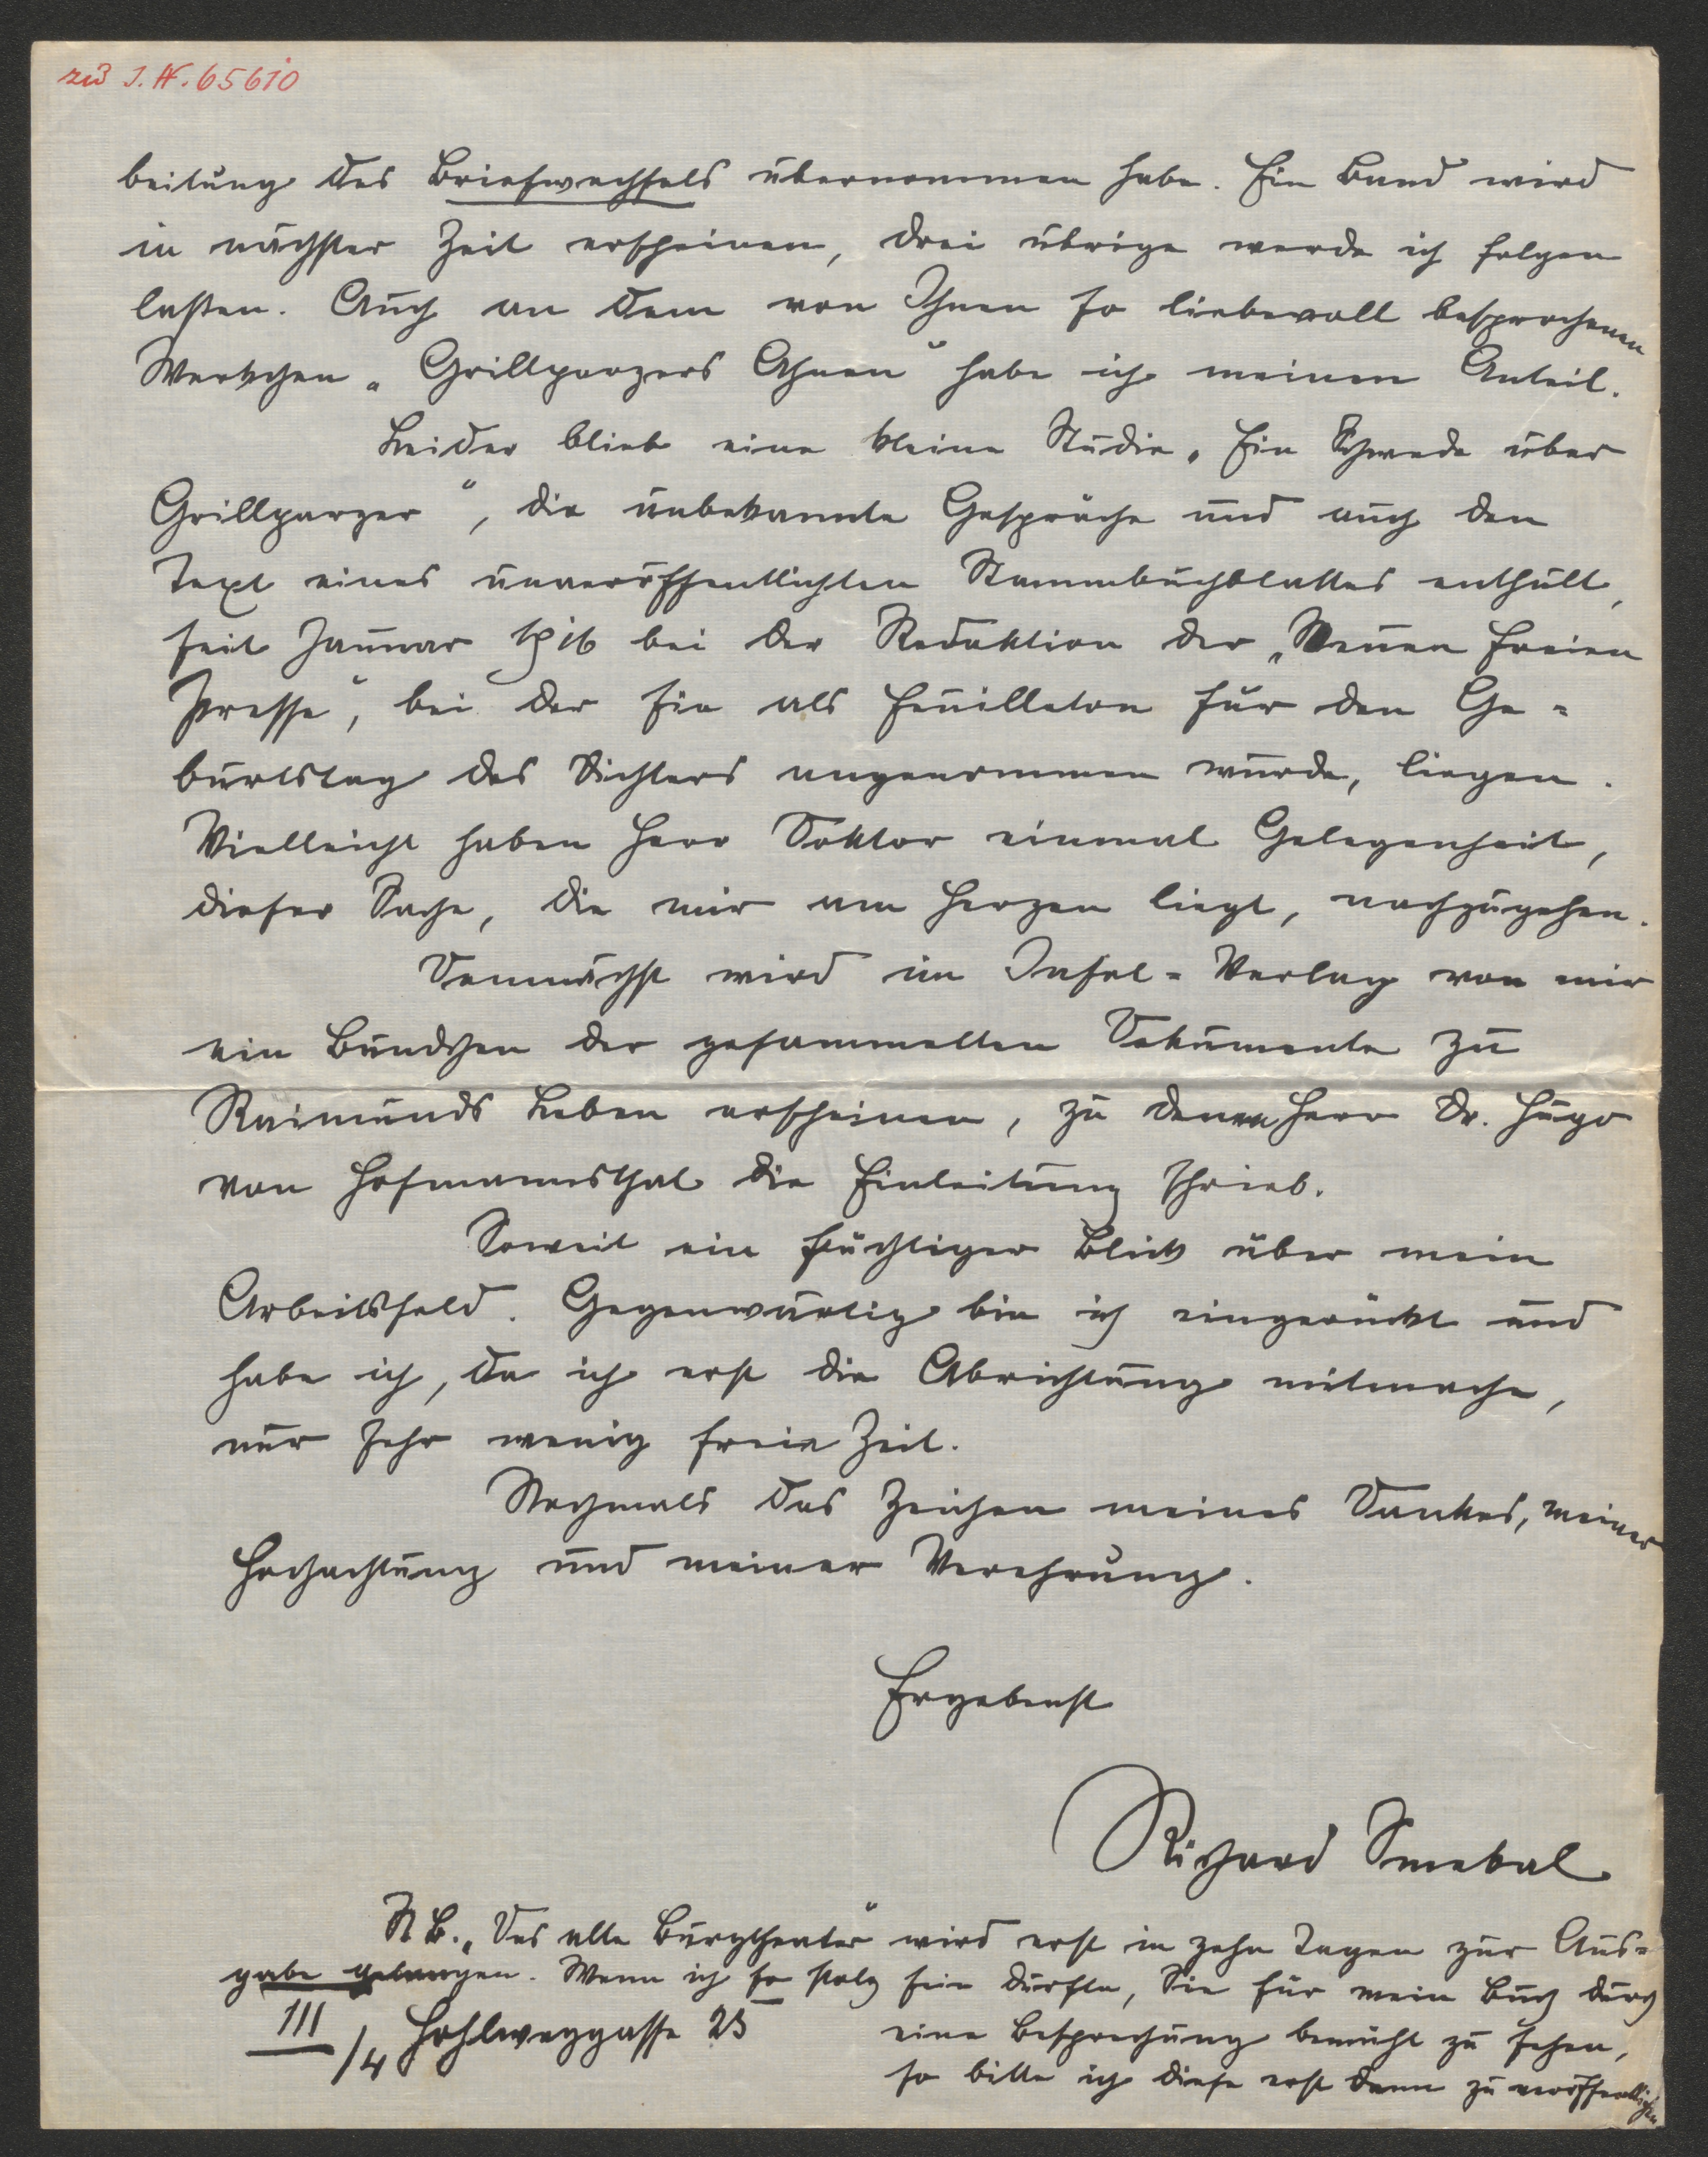 zu I. N. 65610
beitung des Briefwechsels übernommen habe. Ein Band wird
in nächster Zeit erscheinen, drei übrige werde ich folgen
lassen. Auch an dem von Ihnen so liebevoll besprochenen
Werkchen „Grillparzers Ahnen“ habe ich meinen Anteil.
Leider blieb eine kleine Studie „Ein Schwede über
Grillparzer“, die unbekannte Gespräche und auch den
Text eines unveröffentlichten Stammbuchblattes enthält,
seit Januar 1916 bei der Redaktion der „Neuen freien
Presse“, bei der sie als Feuilleton für den Ge=
burtstag des Dichters angenommen wurde, liegen.
Vielleicht haben Herr Doktor einmal Gelegenheit,
dieser Sache, die mir am Herzen liegt, nachzugehen.
Demnächst wird im Insel=Verlag von mir
ein Bändchen der gesammelten Dokumente zu
Raimunds Leben erscheinen, zu denen Herr Dr. Hugo
von Hofmannsthal die Einleitung schrieb.
Soweit ein flüchtiger Blick über mein
Arbeitsfeld. Gegenwärtig bin ich eingerückt und
habe ich, da ich erst die Abrichtung mitmache,
nur sehr wenig freie Zeit.
Nochmals das Zeichen meines Dankes, meiner
Hochachtung und meiner Verehrung.
Ergebenst
Richard Smekal
NB. „Das alte Burgtheater“ wird erst in zehn Tagen zur Aus=
gabe gelangen. Wenn ich so stolz sein dürfte, Sie für mein Buch durch
III/4 Hohlweggasse 25
eine Besprechung bemüht zu sehen,
so bitte ich diese erst dann zu veröffentlichen